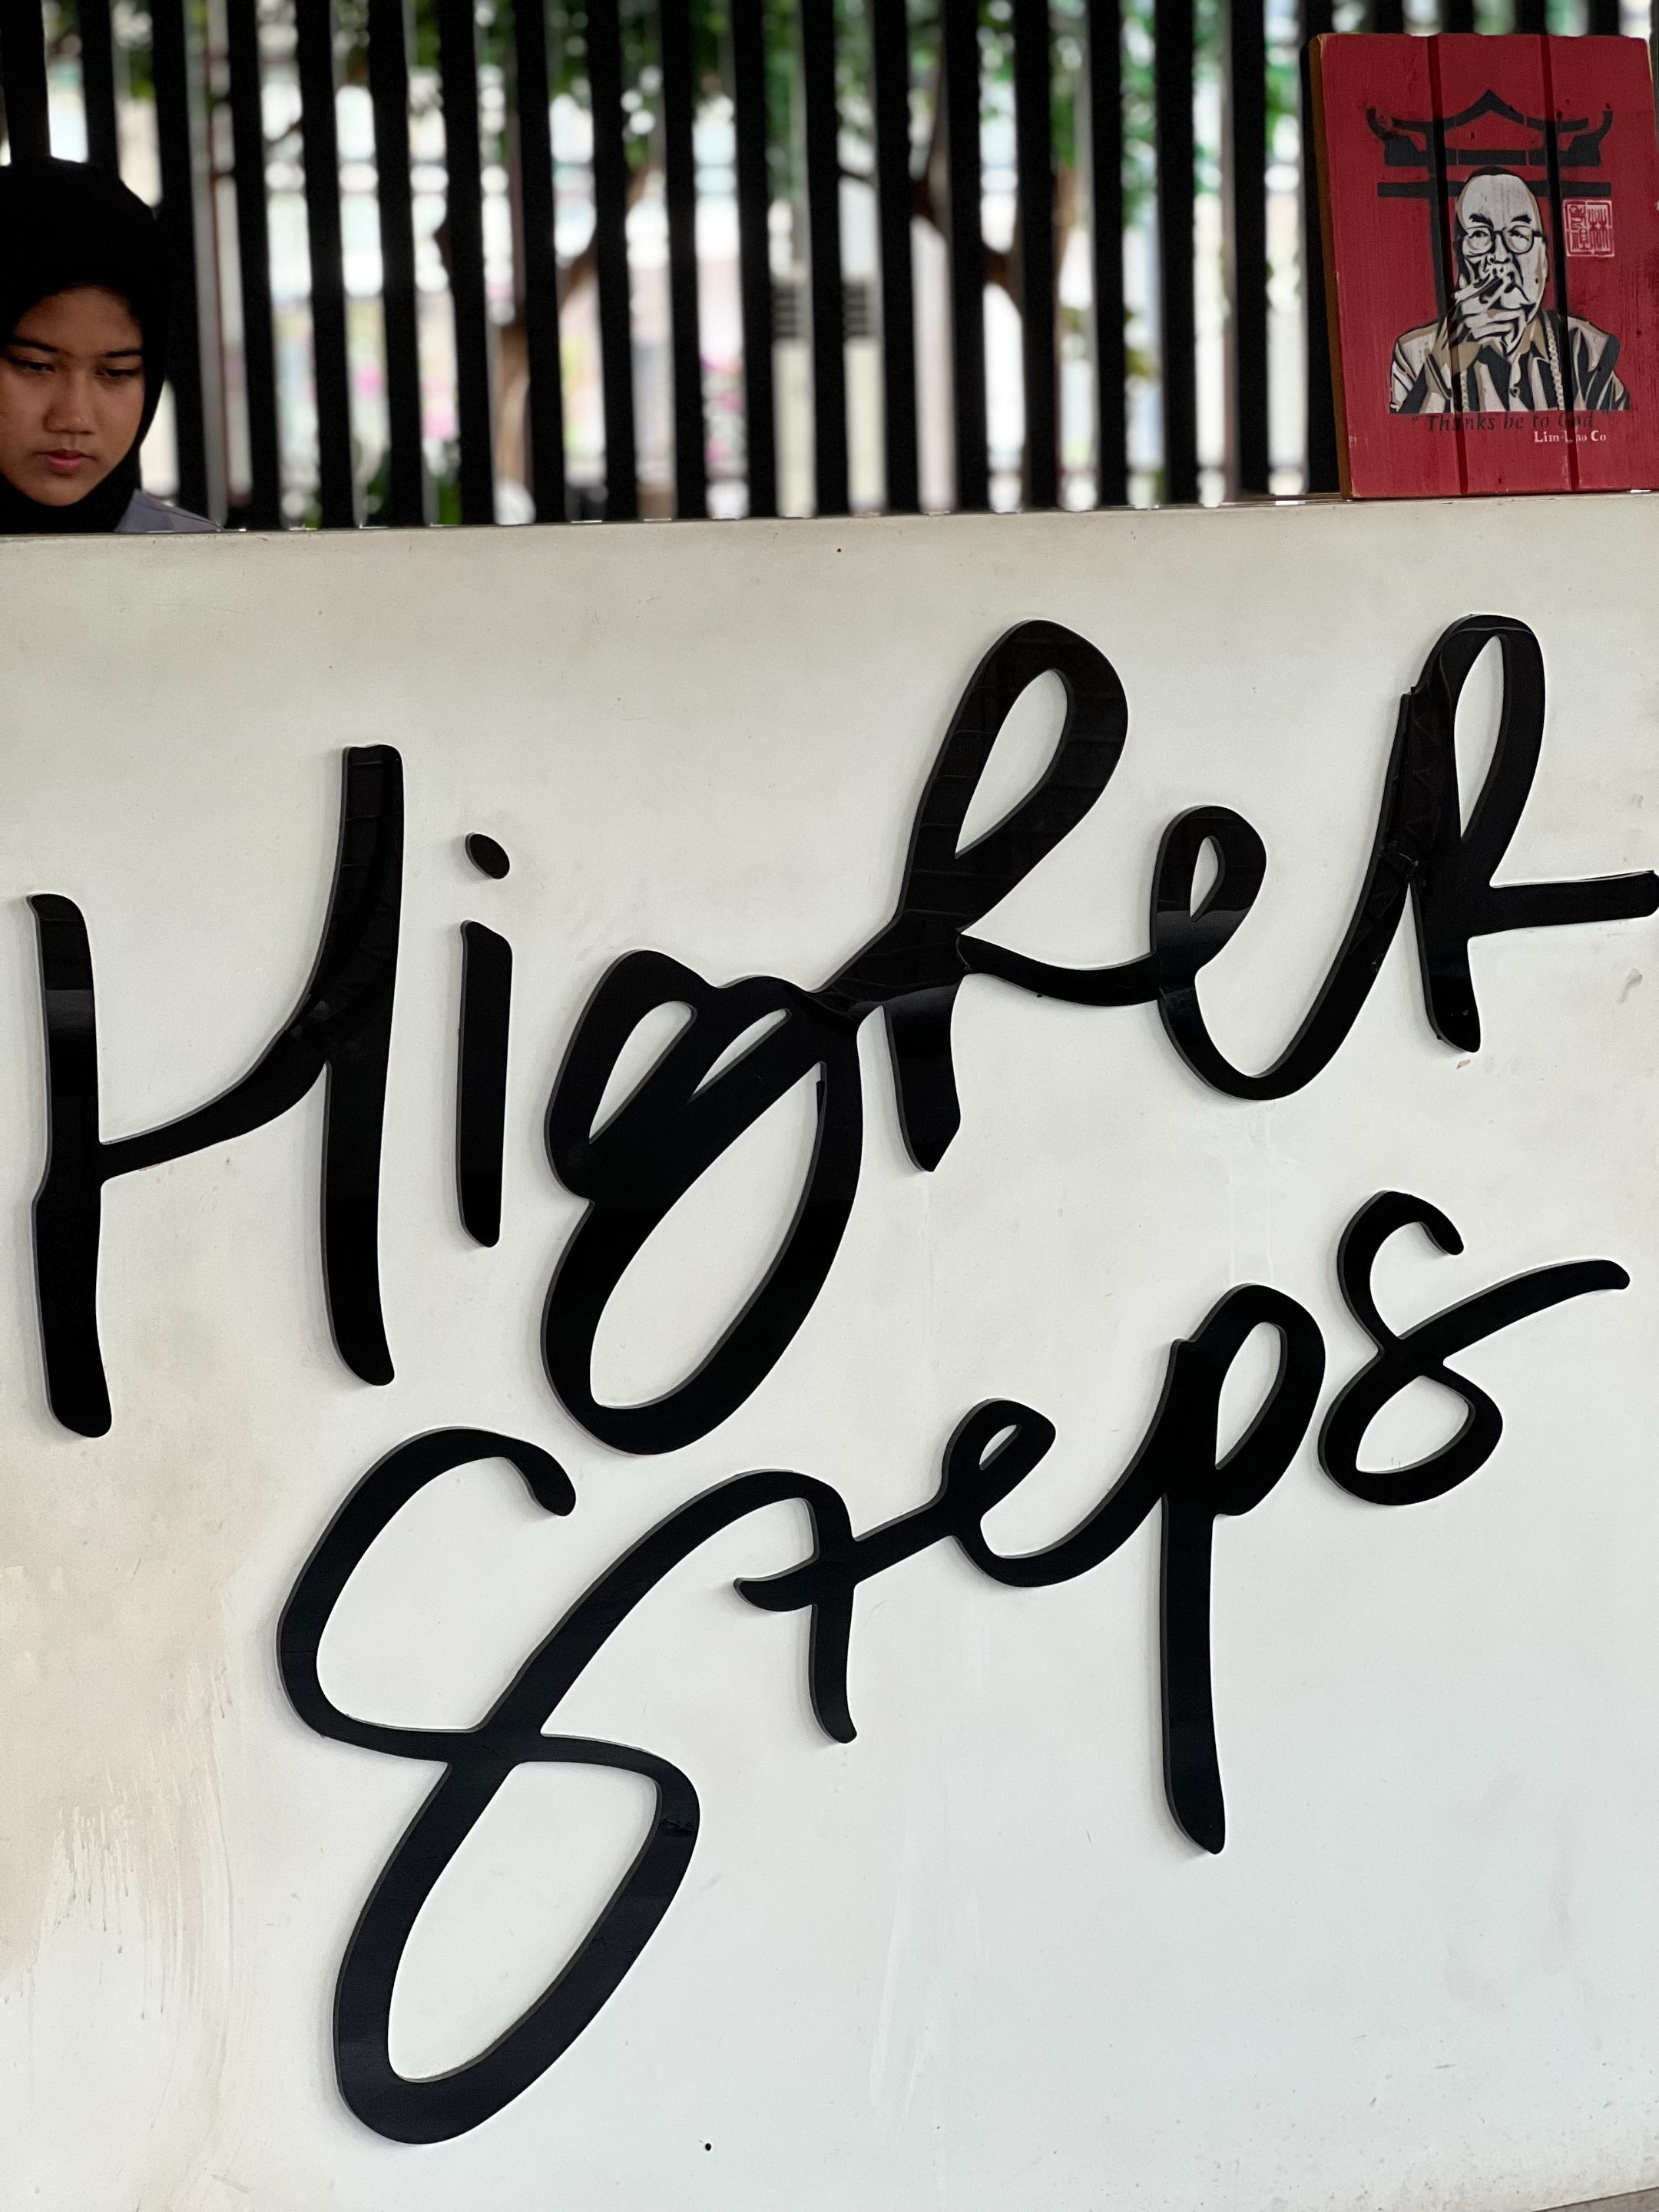 "Thanks be to God"
Lim Lao Co
Higher
Steps